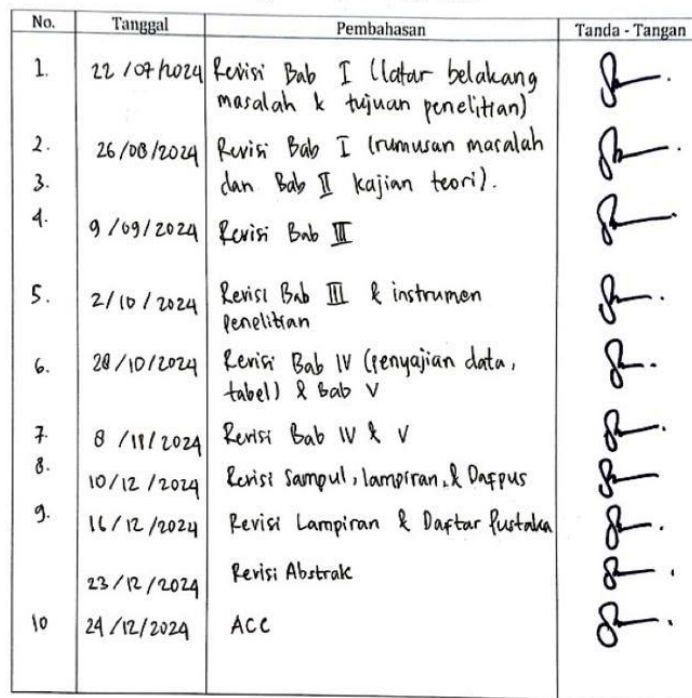 No. Tanggal Pembahasan Tanda - Tangan
1. 22 /07/2024 Revisi Bab I (latar belakang
masalah & tujuan penelitian)
2. 26/08/2024 Revisi Bab I (rumusan masalah
3. dan Bab II kajian teori).
4. 9 /09/2024 Revisi Bab III
5. 2/10 / 2024 Revisi Bab III & instrumen
penelitian
6. 28/10/2024 Revisi Bab IV (penyajian data,
tabel) & Bab V
7. 8 /11/ 2024 Revisi Bab IV & V
8. 10/12 /2024 Revisi Sampul, lampiran, & Dafpus
9. 16/12 /2024 Revisi Lampiran & Daftar Pustaka
23/12 /2024 Revisi Abstrak
10 24/12/2024 ACC